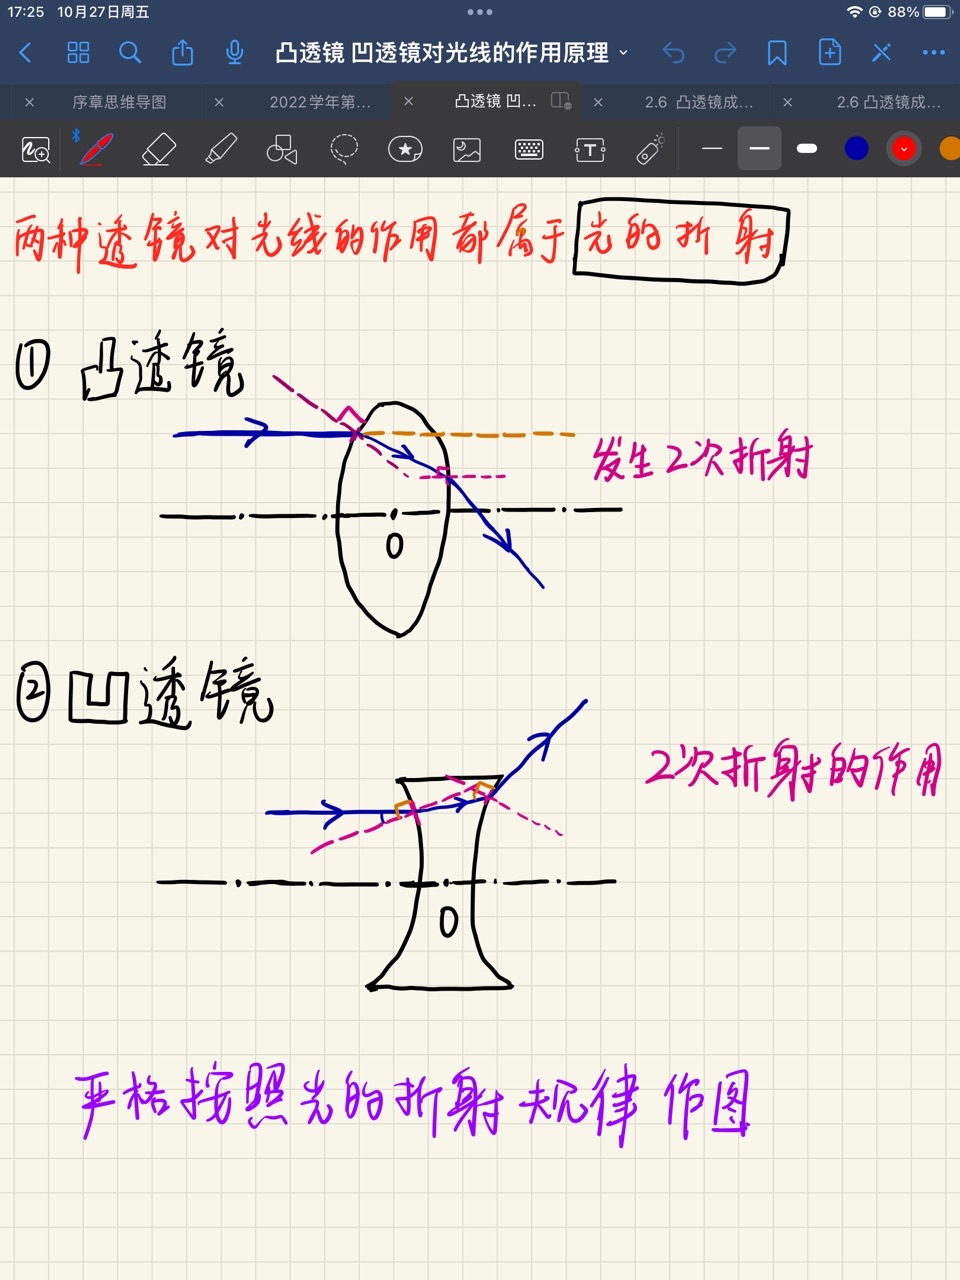 17:25 10月27日周五 88%
凸透镜 凹透镜对光线的作用原理
序章思维导图 2022学年第... 凸透镜 凹... 2.6 凸透镜成... 2.6 凸透镜成...
两种透镜对光线的作用都属于光的折射
① 凸透镜
发生2次折射
O
② 凹透镜
2次折射的作用
O
严格按照光的折射规律作图